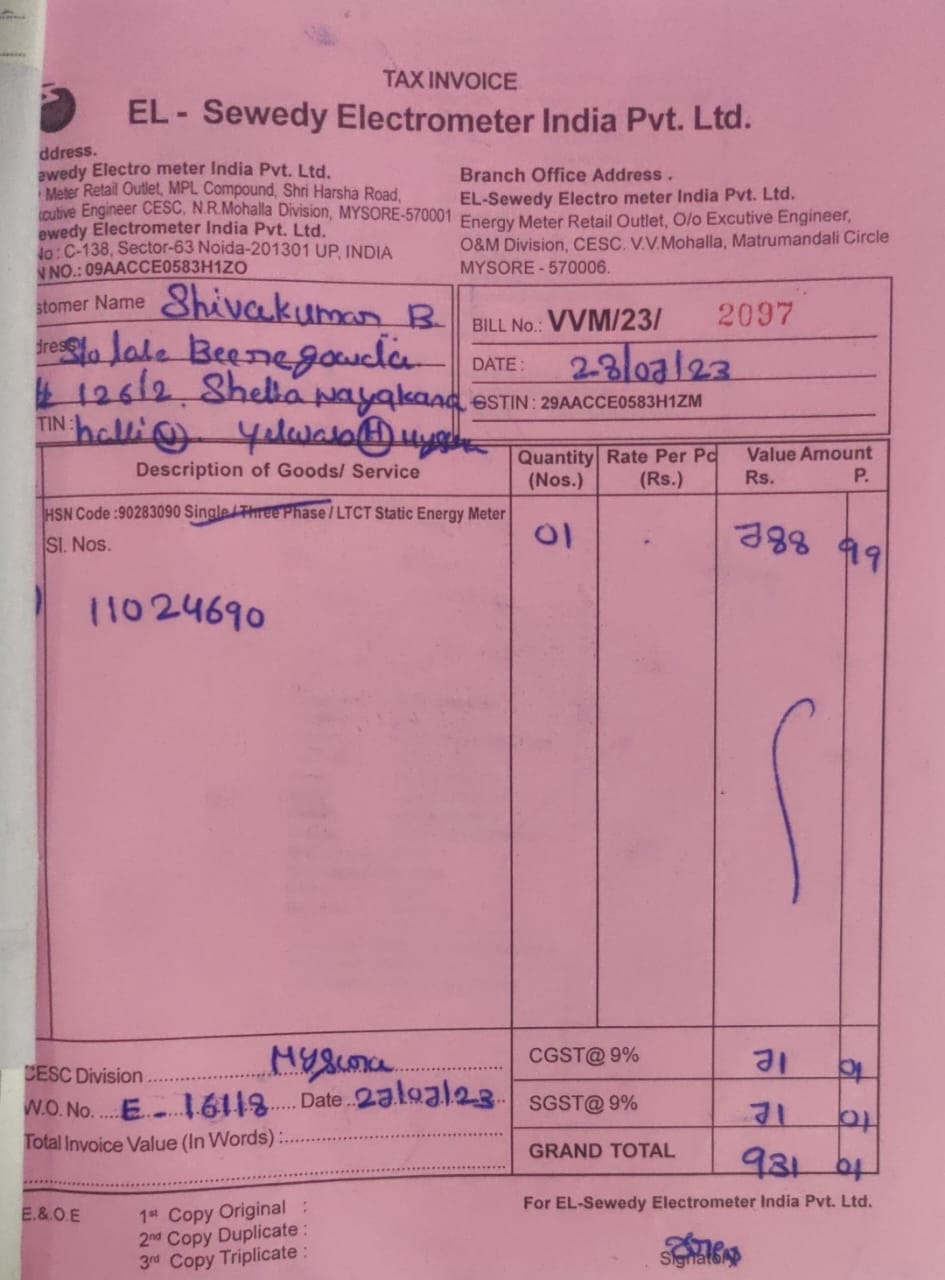 TAX INVOICE
EL - Sewedy Electrometer India Pvt. Ltd.
ddress.
ewedy Electro meter India Pvt. Ltd.
Meter Retail Outlet, MPL Compound, Shri Harsha Road,
cutive Engineer CESC, N.R.Mohalla Division, MYSORE-570001
ewedy Electrometer India Pvt. Ltd.
No : C-138, Sector-63 Noida-201301 UP, INDIA
N NO.: 09AACCE0583H1ZO
Branch Office Address .
EL-Sewedy Electro meter India Pvt. Ltd.
Energy Meter Retail Outlet, O/o Excutive Engineer,
O&M Division, CESC. V.V.Mohalla, Matrumandali Circle
MYSORE - 570006.
stomer Name Shivakumar B.
dress S/o late Beeregowda
# 126/2. Shetta Nayakana
TIN : halli (V). Yelwala (H) Mysore
BILL No.: VVM/23/ 2097
DATE : 28/07/23
GSTIN : 29AACCE0583H1ZM
Description of Goods/ Service
Quantity (Nos.)
Rate Per Pc (Rs.)
Value Amount
Rs. P.
HSN Code :90283090 Single / Three Phase / LTCT Static Energy Meter
01 788 99
SI. Nos.
11024690
CESC Division Mysore
W.O. No. E - 16118 Date 27/07/23
Total Invoice Value (In Words) :
CGST@ 9% 71 01
SGST@ 9% 71 01
GRAND TOTAL 931 01
E.&.O.E
1st Copy Original :
2nd Copy Duplicate :
3rd Copy Triplicate :
For EL-Sewedy Electrometer India Pvt. Ltd.
Signatory